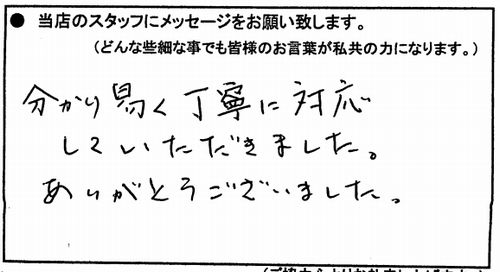 ● 当店のスタッフにメッセージをお願い致します。
（どんな些細な事でも皆様のお言葉が私共の力になります。）
分かり易く丁寧に対応
していただきました。
ありがとうございました。